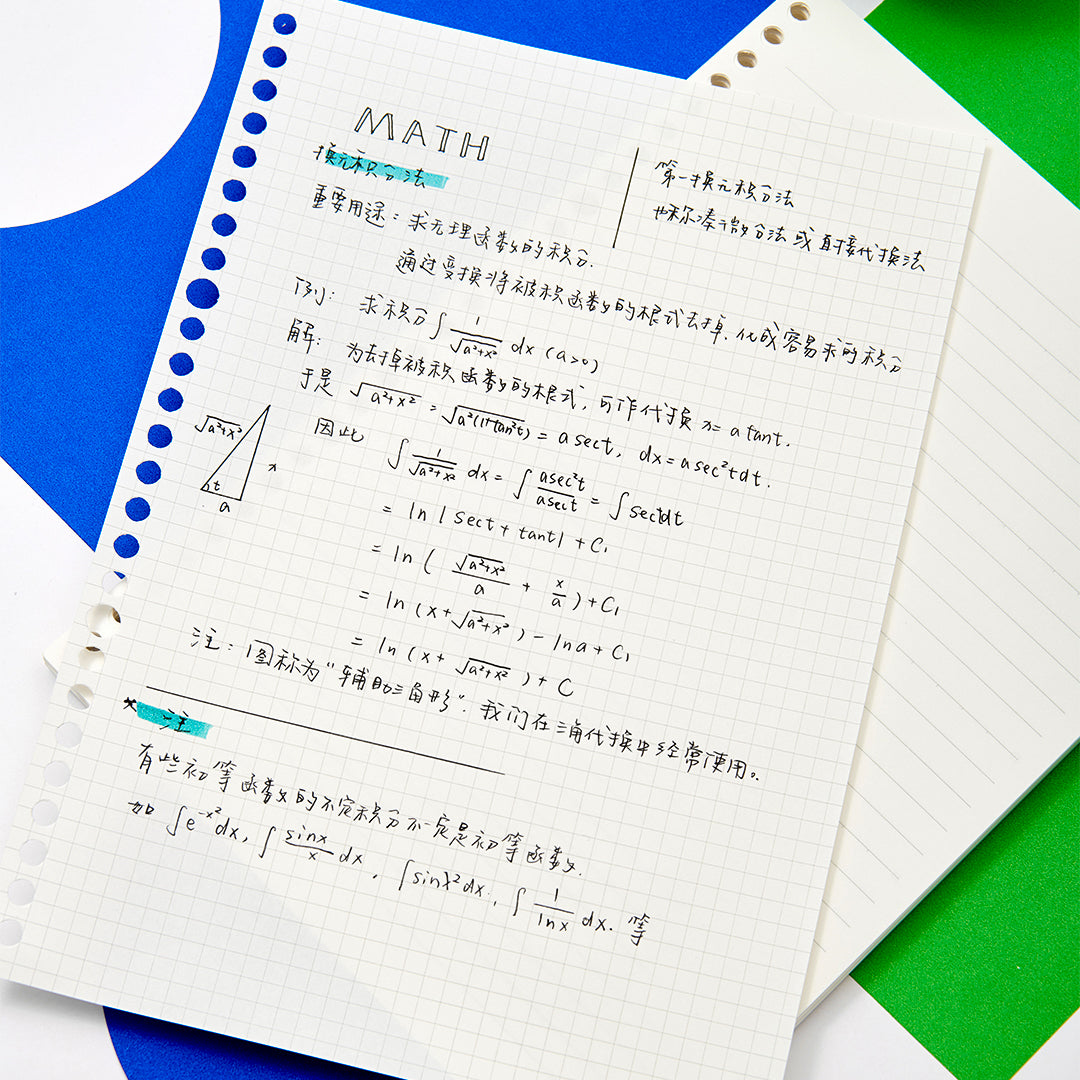 MATH
换元积分法
第一换元积分法
也称凑微分法或直接代换法
重要用途：求无理函数的积分.
通过变换将被积函数的根式去掉.化成容易求的积分
例：求积分∫ 1/√(a²+x²) dx (a>0)
解：为去掉被积函数的根式，可作代换 x = a tant.
于是 √(a²+x²) = √(a²(1+tan²t)) = a sect, dx = a sec²t dt.
√(a²+x²)
x
t
a
因此 ∫ 1/√(a²+x²) dx = ∫ asec²t/asect = ∫ sectdt
= ln | sect + tant | + C₁
= ln ( √(a²+x²)/a + x/a ) + C₁
= ln (x + √(a²+x²)) - lna + C₁
= ln (x + √(a²+x²)) + C
注：图称为“辅助三角形”.我们在三角代换中经常使用。
* 注
有些初等函数的不定积分不一定是初等函数.
如 ∫e^(-x²)dx, ∫ sinx/x dx, ∫sinx²dx, ∫ 1/lnx dx. 等